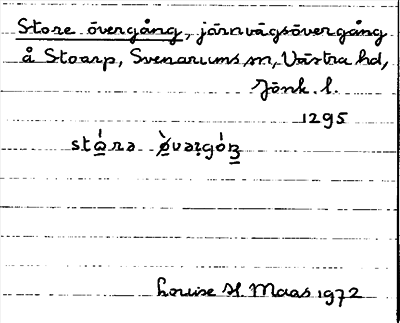 Store övergång, järnvägsövergång
å Stoarp, Svenarums sn, Västra hd,
Jönk. l.
1295
Louise H. Maas 1972